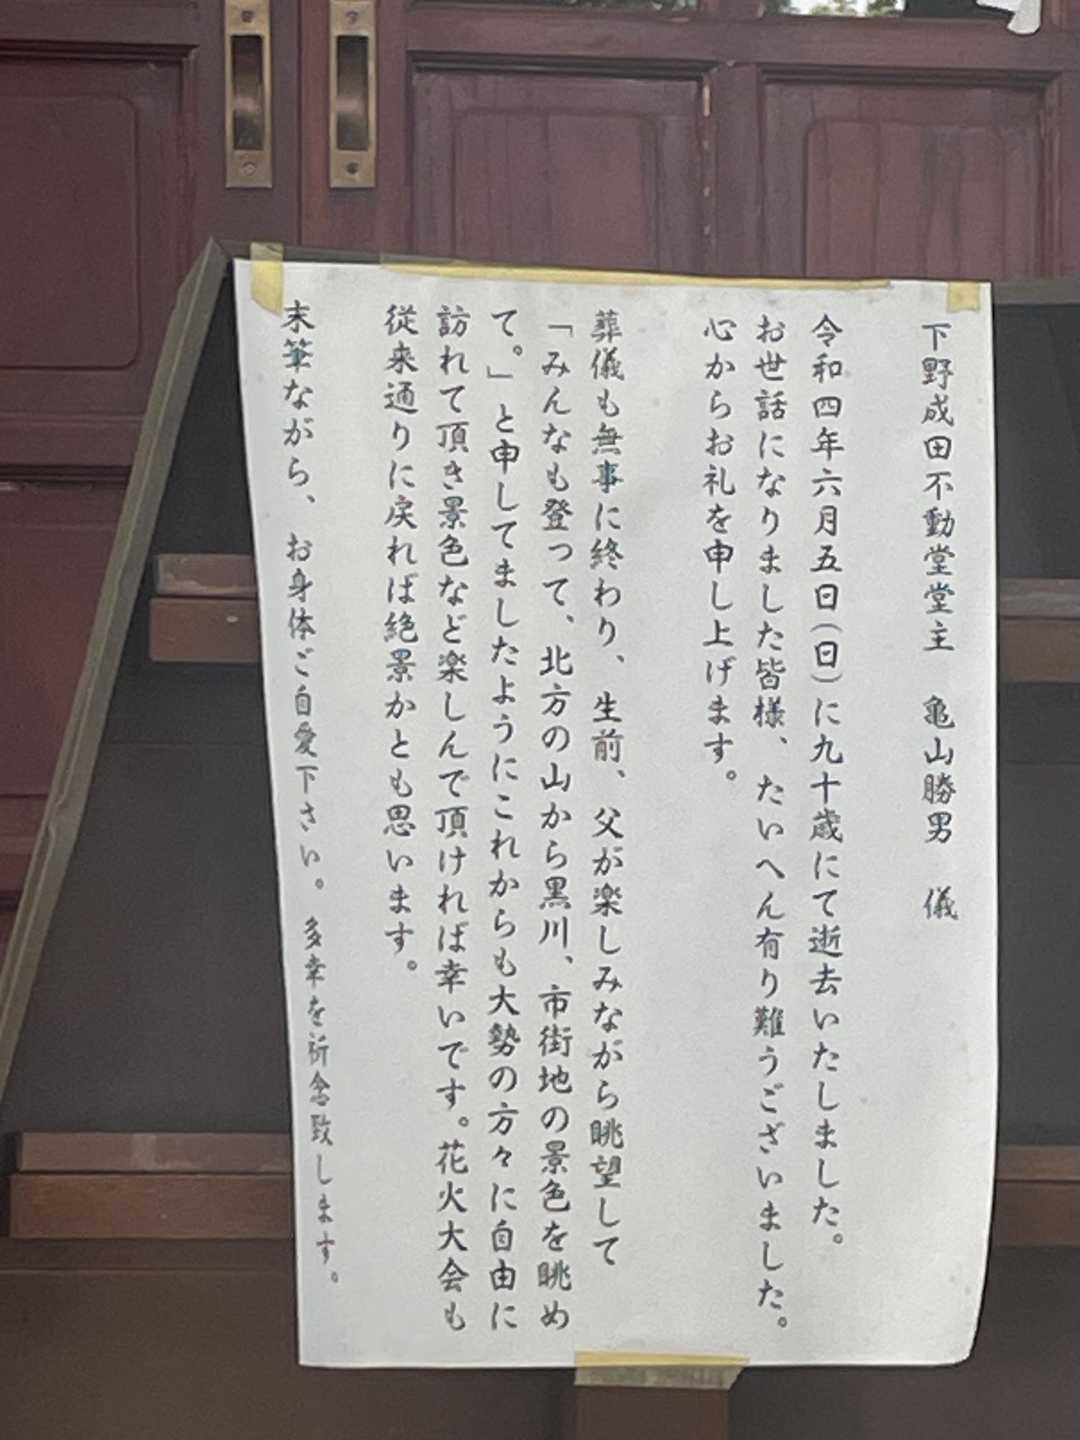 下野成田不動堂堂主　亀山勝男　儀
令和四年六月五日(日)に九十歳にて逝去いたしました。
お世話になりました皆様、たいへん有り難うございました。
心からお礼を申し上げます。
葬儀も無事に終わり、生前、父が楽しみながら眺望して
「みんなも登って、北方の山から黒川、市街地の景色を眺め
て。」と申してましたようにこれからも大勢の方々に自由に
訪れて頂き景色など楽しんで頂ければ幸いです。花火大会も
従来通りに戻れば絶景かとも思います。
末筆ながら、お身体ご自愛下さい。多幸を祈念致します。